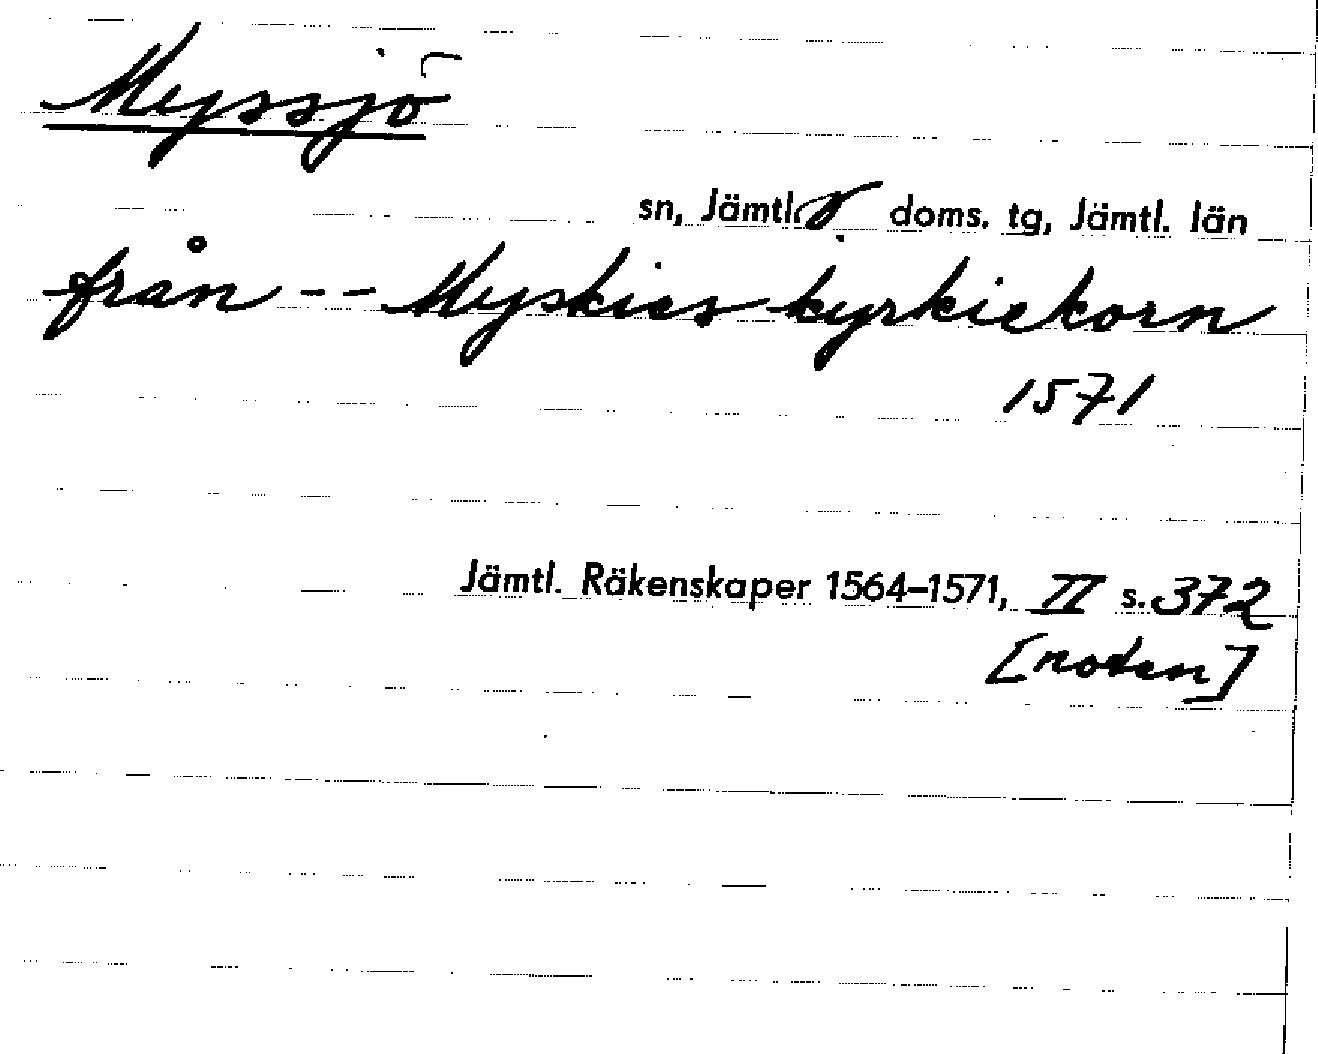 Myssjö
sn, Jämtl. v doms. tg, Jämtl. län
från -- Myskies kyrkiekorn
1571
Jämtl. Räkenskaper 1564–1571, II s. 372
[noten]